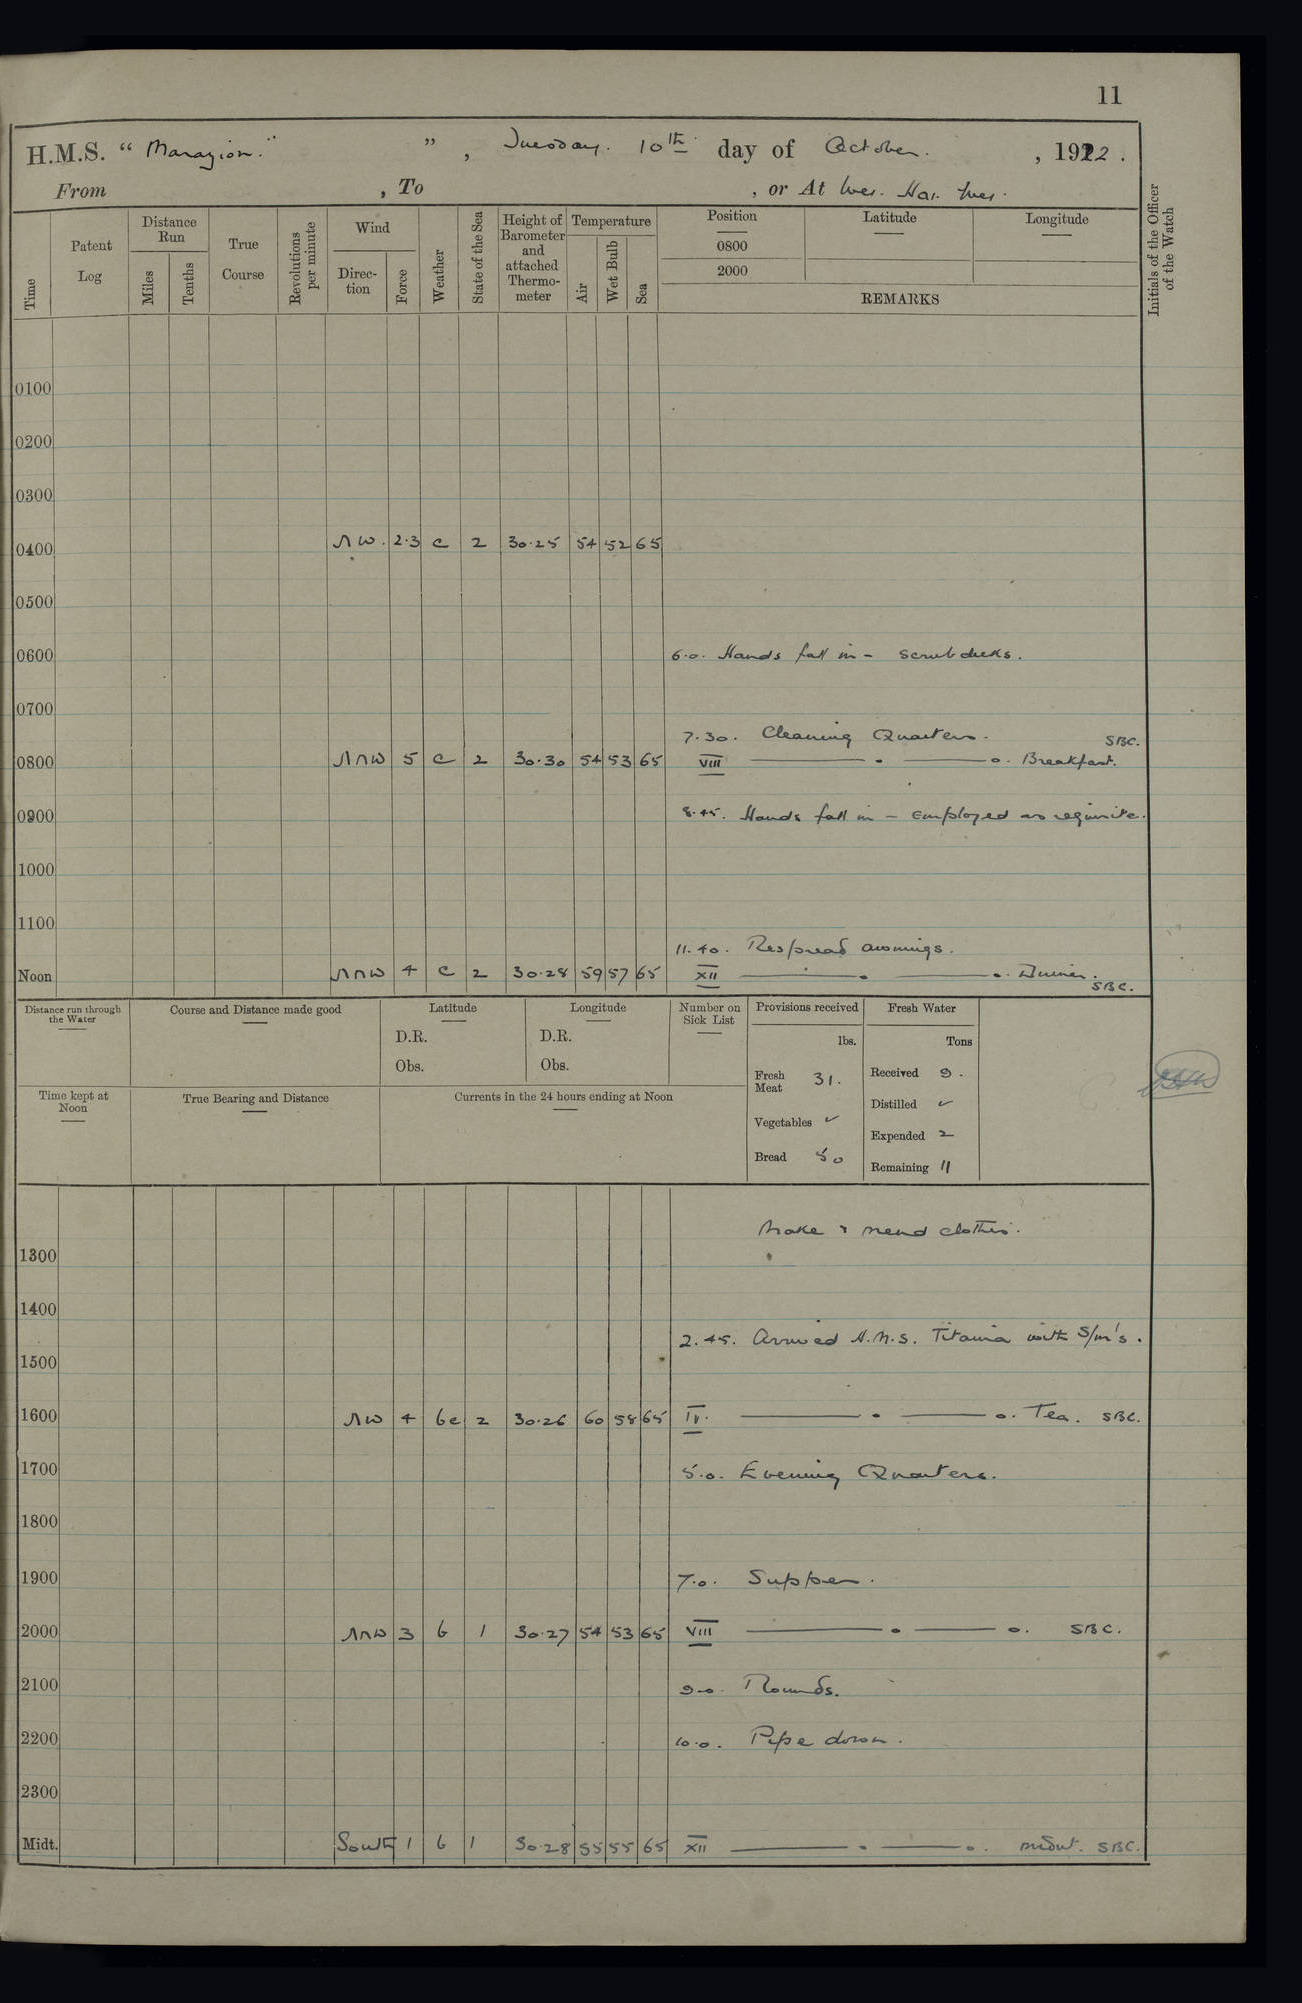 11
H.M.S. “ Marazion. ” , Tuesday. 10th day of October. , 1922.
From , To , or At Wei. Hai. Wei.
Time
Patent Log
Distance Run
Miles
Tenths
True Course
Revolutions per minute
Wind
Direction
Force
Weather
State of the Sea
Height of Barometer and attached Thermometer
Temperature
Air
Wet Bulb
Sea
Position Latitude Longitude
0800
2000
REMARKS
Initials of the Officer of the Watch
0100
0200
0300
0400 NW. 2.3 c 2 30.25 54 52 65
0500
0600 6.0. Hands fall in - scrub decks.
0700
7.30. Cleaning Quarters. SBC.
0800 NNW 5 c 2 30.30 54 53 65 VIII Breakfast.
0900 8.45. Hands fall in - employed as requisite.
1000
1100
11.40. Respread awnings.
Noon NNW 4 c 2 30.28 59 57 65 XII Dinner.
SBC.
Distance run through the Water
Course and Distance made good
Latitude
D.R.
Obs.
Longitude
D.R.
Obs.
Number on Sick List
Provisions received
lbs.
Fresh Meat 31.
Vegetables ✓
Bread 50
Fresh Water
Tons
Received 9.
Distilled ✓
Expended 2
Remaining 11
Time kept at Noon
True Bearing and Distance
Currents in the 24 hours ending at Noon
Make & mend clothes.
1300
1400
2.45. Arrived H.M.S. Titania with S/m's.
1500
1600 NW 4 bc 2 30.26 60 58 65 IV. Tea. SBC.
1700 5.0. Evening Quarters.
1800
1900 7.0. Supper.
2000 NNW 3 b 1 30.27 54 53 65 VIII SBC.
2100 9.0. Rounds.
2200 10.0. Pipe down.
2300
Midt. South 1 b 1 30.28 55 55 65 XII midnt. SBC.